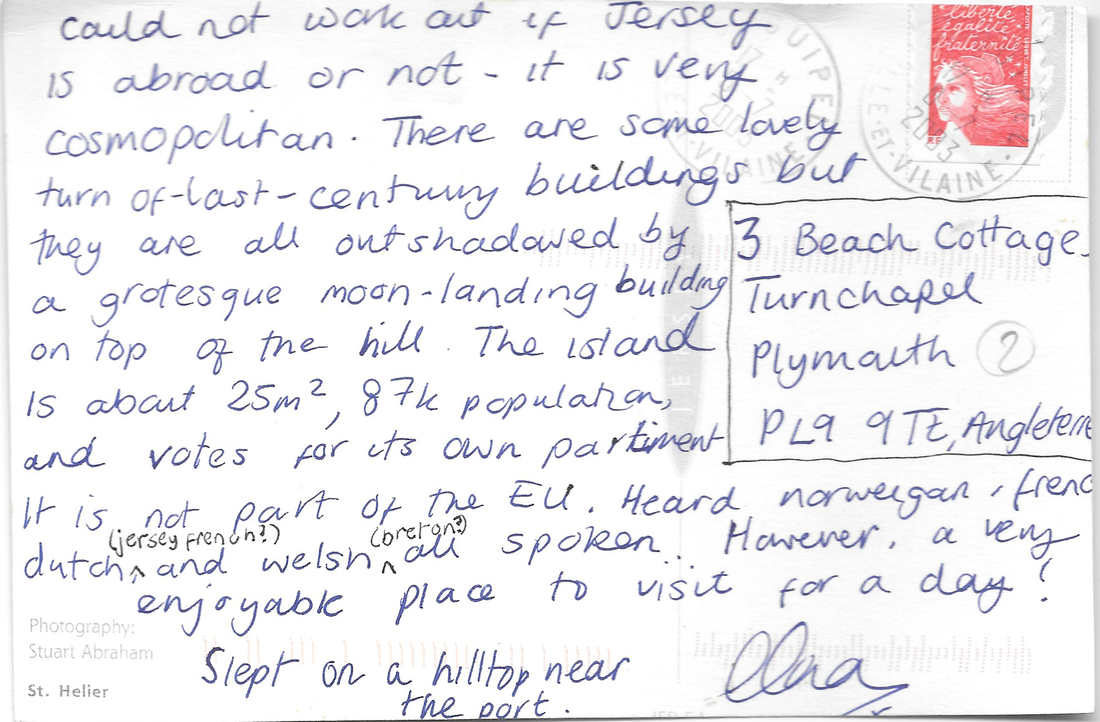 could not work out if Jersey
is abroad or not - it is very
cosmopolitan. There are some lovely
turn of-last-century buildings but
they are all outshadowed by
a grotesque moon-landing building
on top of the hill. The island
is about 25m², 87k population,
and votes for its own partiment
It is not part of the EU. Heard norweigan, frenc
(jersey french?) (breton?)
dutch ^ and welsh ^ all spoken. However, a very
enjoyable place to visit for a day!
Slept on a hilltop near
the port.
liberté
égalité
fraternité
ILLE-ET-VILAINE
2003
3 Beach Cottage.
Turnchapel
Plymouth 2
PL9 9TE, Angleterre
Photography:
Stuart Abraham
St. Helier